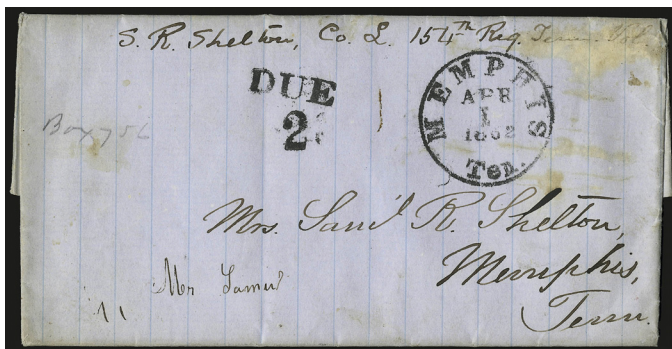 S. R. Shelton, Co. L. 154th Reg. Tenn. Vol.
DUE
2
MEMPHIS
APR
1
1862
Ten.
Box 756
Mrs. Saml R. Shelton,
Memphis,
Tenn.
Mr Samul